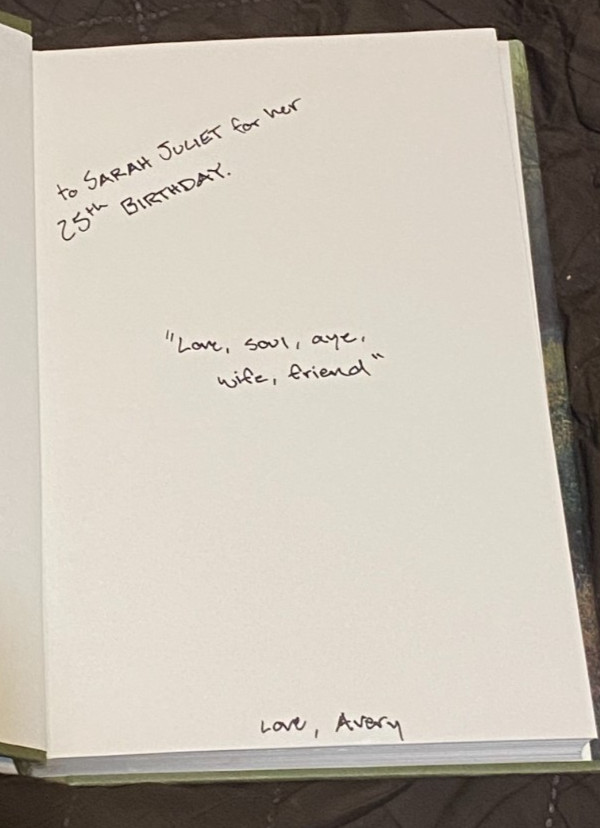 to SARAH JULIET for her
25th BIRTHDAY.
"Love, soul, aye,
wife, friend"
Love, Avery